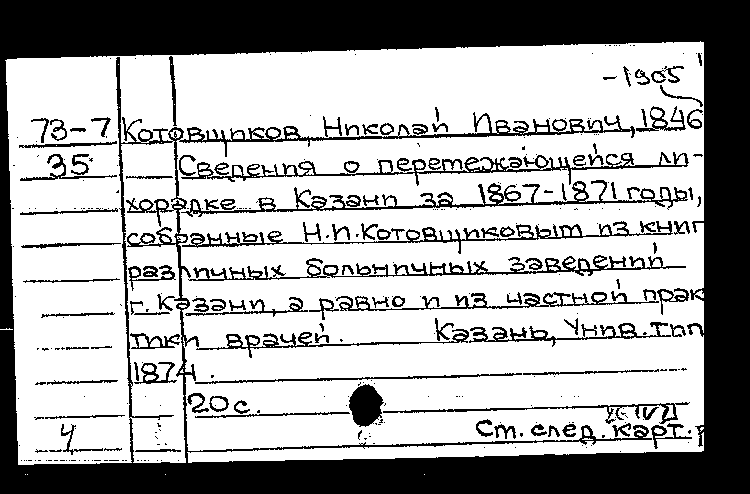 -1905
73-7 Котовщиков, Николай Иванович, 1846
35 Сведения о перетежающейся ли-
хорадке в Казани за 1867-1871 годы,
собранные Н.И.Котовщиковым из книг
различных больничных заведений
г. Казани, а равно и из частной прак
тики врачей. Казань, Унив. тип
1874.
20 с.
4 Ст. след. карт.